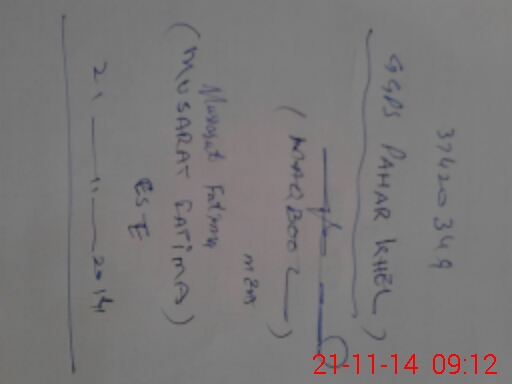 37420349
GGPS PAHAR KHEL )
( MAQBOOL )
MEA
Musarat Fatima
( MUSARAT FATIMA )
EST
21 — 11 — 2014
21-11-14 09:12